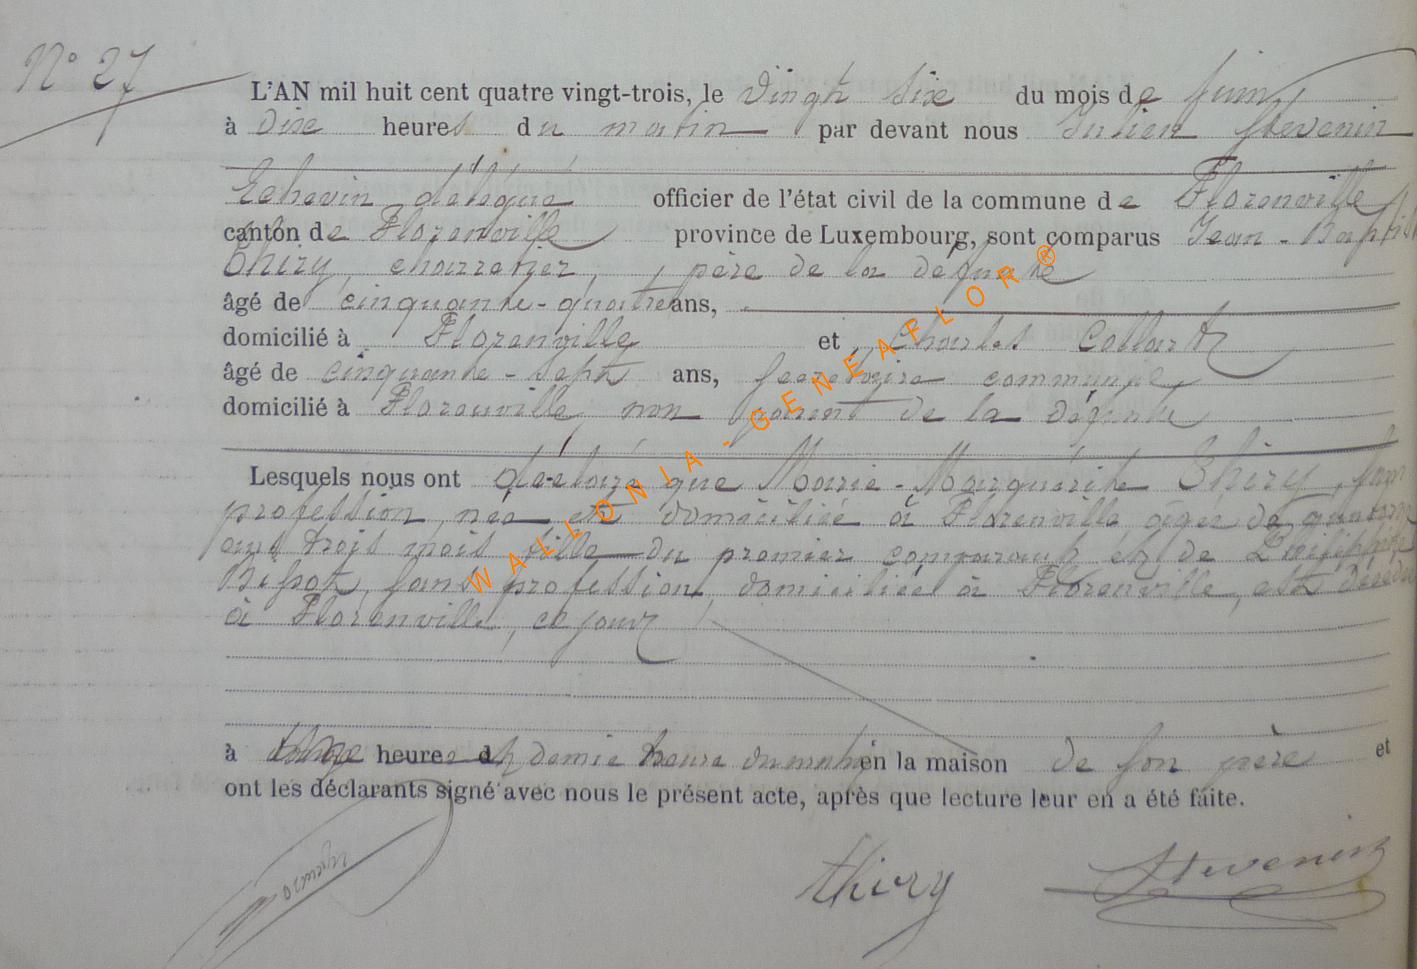 N° 27
L'AN mil huit cent quatre vingt-trois, le Vingt Six du mois de Juin,
à Dix heures du matin par devant nous Julien Stevenin
Echevin délégué officier de l'état civil de la commune de Florenville
canton de Florenville province de Luxembourg, sont comparus Jean-Baptiste
Thiry, charretier, père de la défunte
âgé de cinquante-quatre ans,
domicilié à Florenville et Charles Collart
âgé de cinquante-sept ans, secrétaire communal,
domicilié à Florenville, non parent de la défunte
Lesquels nous ont déclaré que Marie-Marguérite Thiry, sans
profession, née et domiciliée à Florenville âgée de quatorze
ans trois mois fille du premier comparant et de
sans profession, domiciliée à Florenville, est décédée
à Florenville, ce jour
à heures et demie heure du matin en la maison de son père et
ont les déclarants signé avec nous le présent acte, après que lecture leur en a été faite.
thiry Stevenin
WALLONIA - GENEAFLOR ®